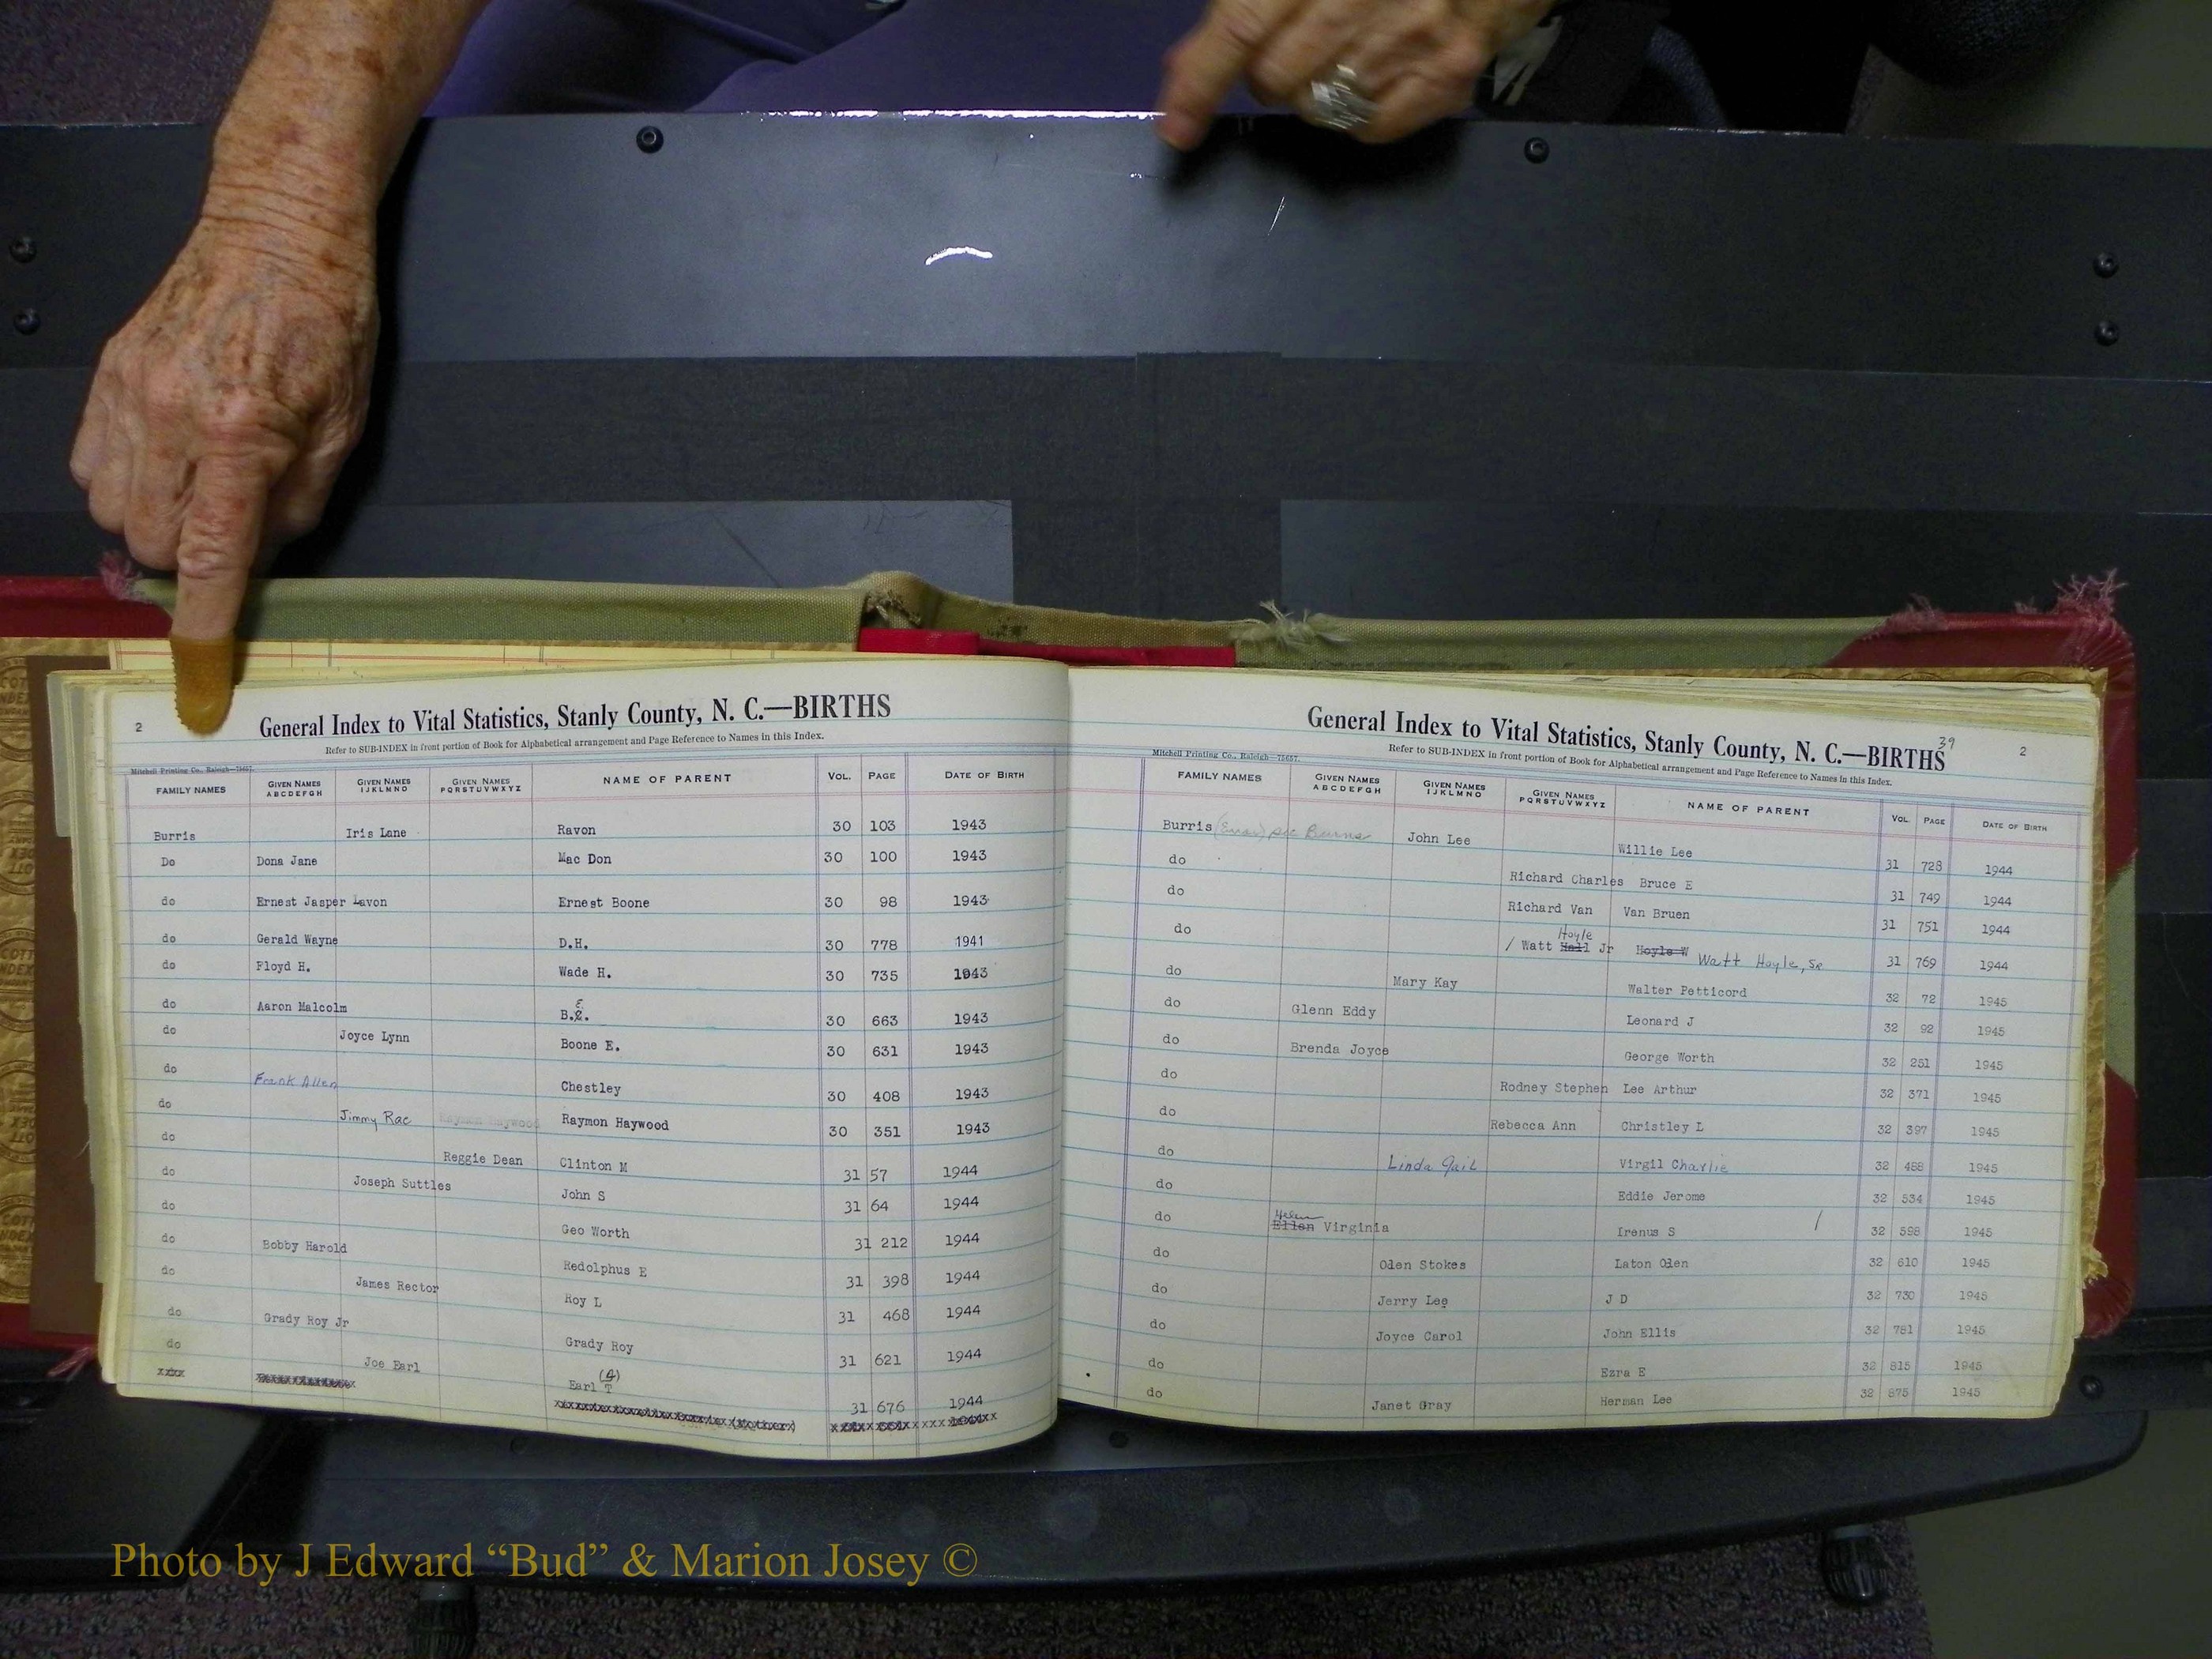 2
General Index to Vital Statistics, Stanly County, N. C.—BIRTHS
Refer to SUB-INDEX in front portion of Book for Alphabetical arrangement and Page Reference to Names in this Index.
Mitchell Printing Co., Raleigh—75657.
FAMILY NAMES GIVEN NAMES ABCDEFGH GIVEN NAMES IJKLMNO GIVEN NAMES PQRSTUVWXYZ NAME OF PARENT VOL. PAGE DATE OF BIRTH
Burris Iris Lane Ravon 30 103 1943
Do Dona Jane Mac Don 30 100 1943
do Ernest Jasper Lavon Ernest Boone 30 98 1943
do Gerald Wayne D.H. 30 778 1941
do Floyd H. Wade H. 30 735 1943
do Aaron Malcolm B.E. 30 663 1943
do Joyce Lynn Boone E. 30 631 1943
do Frank Allen Chestley 30 408 1943
do Jimmy Rac Raymon Haywood Raymon Haywood 30 351 1943
do Reggie Dean Clinton M 31 57 1944
do Joseph Suttles John S 31 64 1944
do Geo Worth 31 212 1944
do Bobby Harold Redolphus E 31 398 1944
do James Rector Roy L 31 468 1944
do Grady Roy Jr Grady Roy 31 621 1944
do Joe Earl Earl T (A) 31 676 1944
xxxx (Mother)
39 2
General Index to Vital Statistics, Stanly County, N. C.—BIRTHS
Refer to SUB-INDEX in front portion of Book for Alphabetical arrangement and Page Reference to Names in this Index.
Mitchell Printing Co., Raleigh—75657.
FAMILY NAMES GIVEN NAMES ABCDEFGH GIVEN NAMES IJKLMNO GIVEN NAMES PQRSTUVWXYZ NAME OF PARENT VOL. PAGE DATE OF BIRTH
Burris (Error) see Burns John Lee Willie Lee 31 728 1944
do Richard Charles Bruce E 31 749 1944
do Richard Van Van Bruen 31 751 1944
do / Watt Hall Hoyle Jr Hoyle W Watt Hoyle, Sr 31 769 1944
do Mary Kay Walter Petticord 32 72 1945
do Glenn Eddy Leonard J 32 92 1945
do Brenda Joyce George Worth 32 251 1945
do Rodney Stephen Lee Arthur 32 371 1945
do Rebecca Ann Christley L 32 397 1945
do Linda Gail Virgil Charlie 32 488 1945
do Eddie Jerome 32 534 1945
do Ellen Helen Virginia Irenus S / 32 598 1945
do Olen Stokes Laton Olen 32 610 1945
do Jerry Lee J D 32 730 1945
do Joyce Carol John Ellis 32 781 1945
do Ezra E 32 815 1945
do Janet Gray Herman Lee 32 875 1945
Photo by J Edward “Bud” & Marion Josey ©